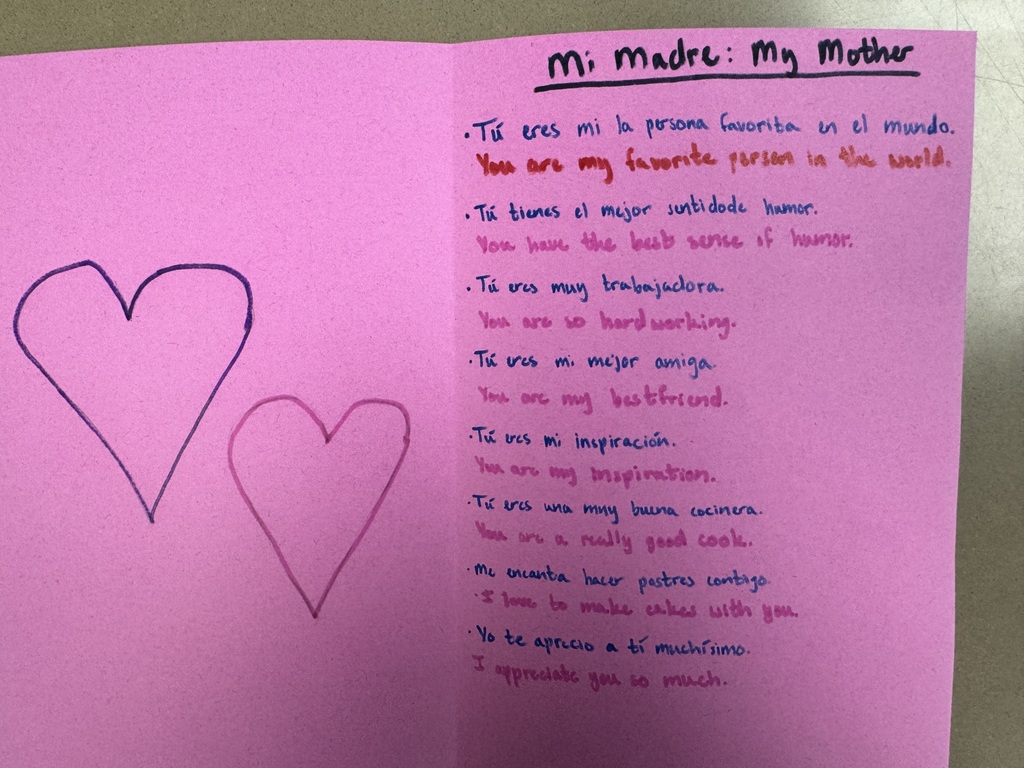 Mi Madre: My Mother
• Tú eres mi la persona favorita en el mundo.
You are my favorite person in the world.
• Tú tienes el mejor sentidode humor.
You have the best sense of humor.
• Tú eres muy trabajadora.
You are so hardworking.
• Tú eres mi mejor amiga.
You are my bestfriend.
• Tú eres mi inspiración.
You are my inspiration.
• Tú eres una muy buena cocinera.
You are a really good cook.
• Me encanta hacer postres contigo.
• I love to make cakes with you.
• Yo te aprecio a tí muchísimo.
I appreciate you so much.